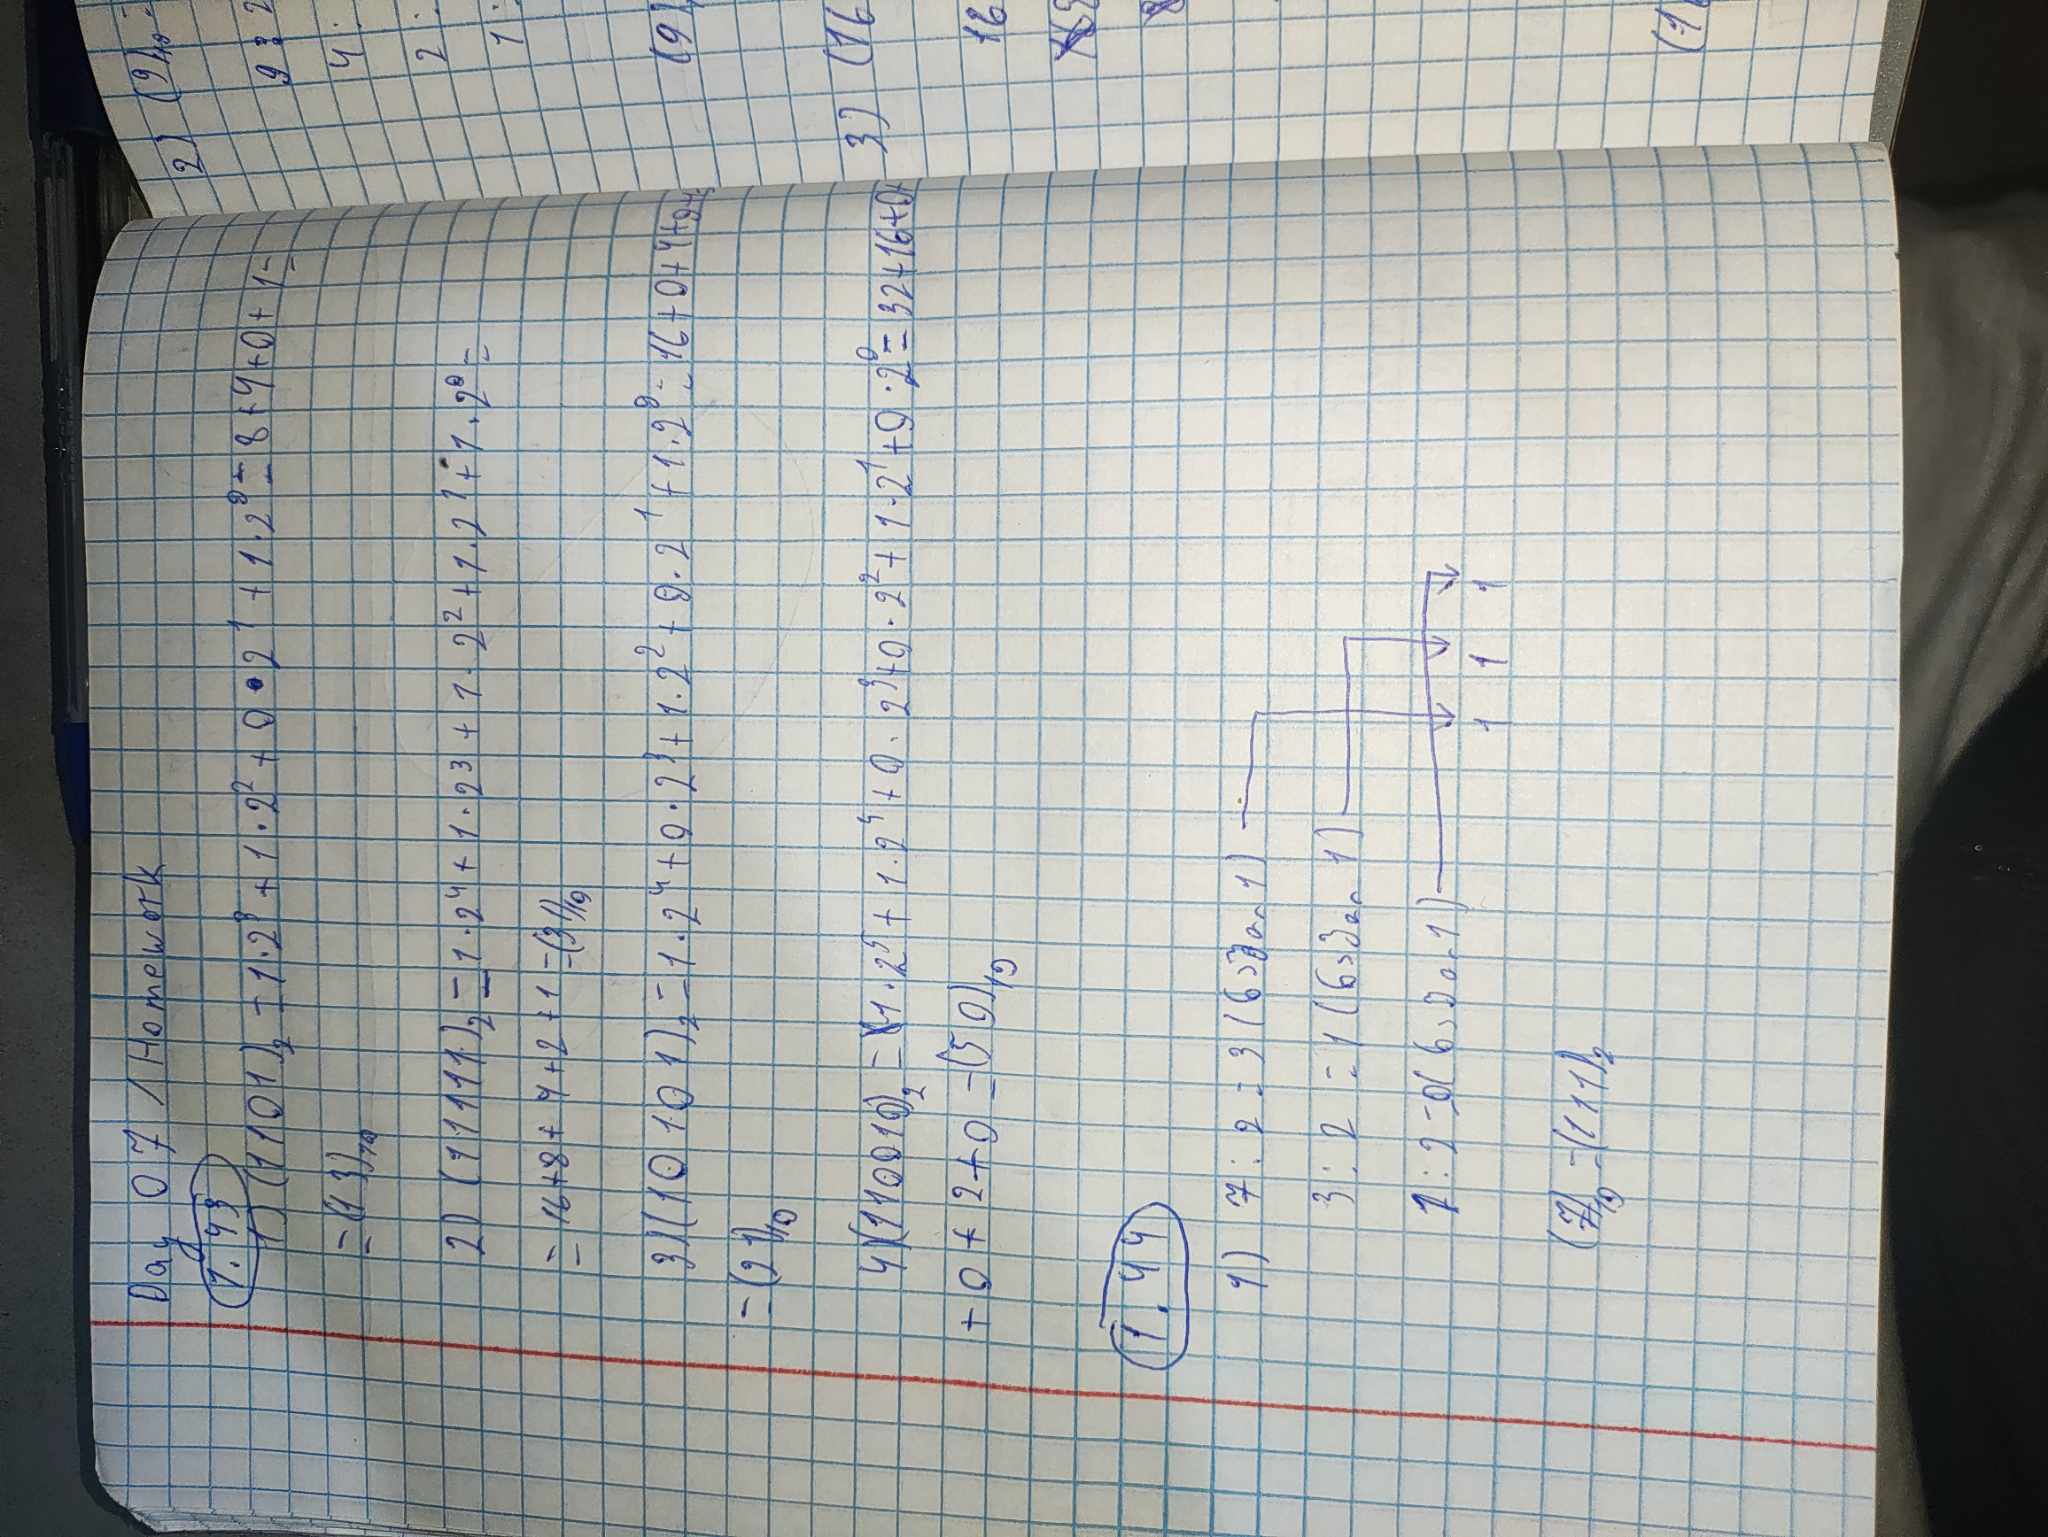 Day 07 / Homework
1.43
1) (1101)₂ = 1·2³ + 1·2² + 0·2¹ + 1·2⁰ = 8+4+0+1 =
= (13)₁₀
2) (11111)₂ = 1·2⁴ + 1·2³ + 1·2² + 1·2¹ + 1·2⁰ =
= 16+8+4+2+1 = (31)₁₀
3) (10101)₂ = 1·2⁴ + 0·2³ + 1·2² + 0·2¹ + 1·2⁰ = 16+0+4+0+
= (21)₁₀
4) (110010)₂ = 1·2⁵ + 1·2⁴ + 0·2³ + 0·2² + 1·2¹ + 0·2⁰ = 32+16+0+
+0+2+0 = (50)₁₀
1.44
1) 7:2=3 (
3:2=1 (
1:2=0 (
1 1 1
(7)₁₀ = (111)₂
2) (9)₁₀
9:2
4:
2:
1:
(9)
3) (16
16
8
(1